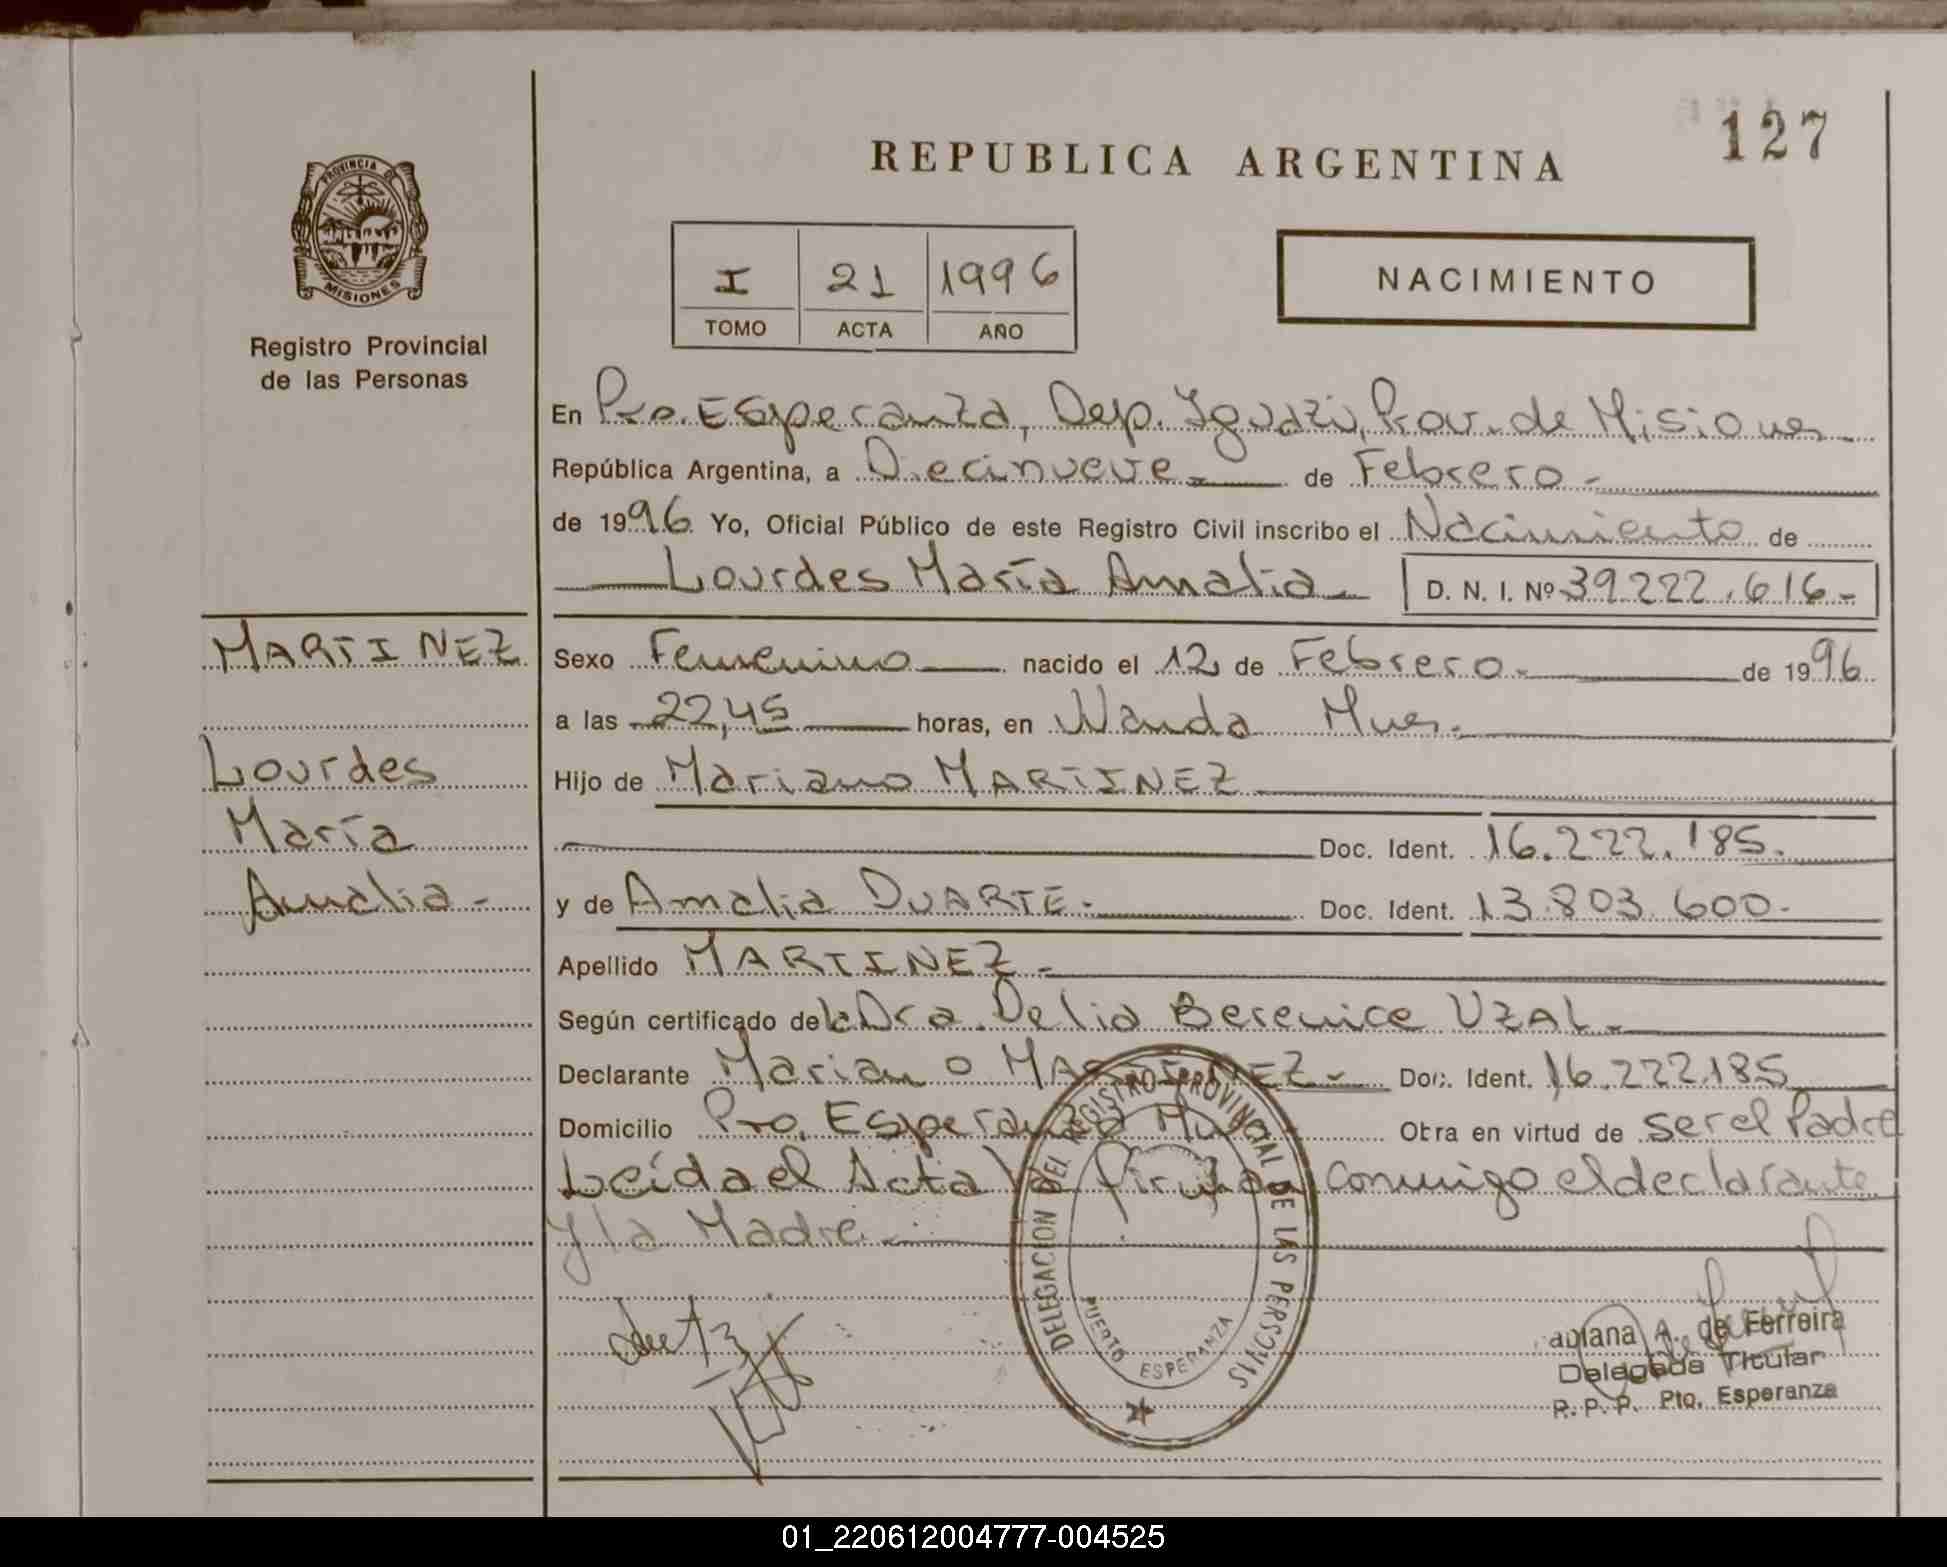 127
REPUBLICA ARGENTINA
PROVINCIA DE
MISIONES
Registro Provincial
de las Personas
I 21 1996
TOMO ACTA AÑO
NACIMIENTO
En Pto. Esperanza, Dep. Iguazú, Prov. de Misiones
República Argentina, a Diecinueve de Febrero
de 1996 Yo, Oficial Público de este Registro Civil inscribo el Nacimiento de
Lourdes María Amalia D. N. I. Nº 39.222.616
MARTINEZ
Lourdes
María
Amalia
Sexo Femenino nacido el 12 de Febrero de 1996
a las 22,45 horas, en Wanda Mnes.
Hijo de Mariano MARTINEZ
Doc. Ident. 16.222.185.
y de Amalia DUARTE. Doc. Ident. 13.803.600
Apellido MARTINEZ
Según certificado de la Dra. Delia Berenice UZAL
Declarante Mariano MARTINEZ Doc. Ident. 16.222.185
Domicilio Pto. Esperanza Obra en virtud de ser el Padre
Leída el Acta firman conmigo el declarante
y la Madre.
DELEGACION DEL REGISTRO PROVINCIAL DE LAS PERSONAS
PUERTO ESPERANZA
A. de Ferreira
Delegada Titular
R. P. P. Pto. Esperanza
01_220612004777-004525